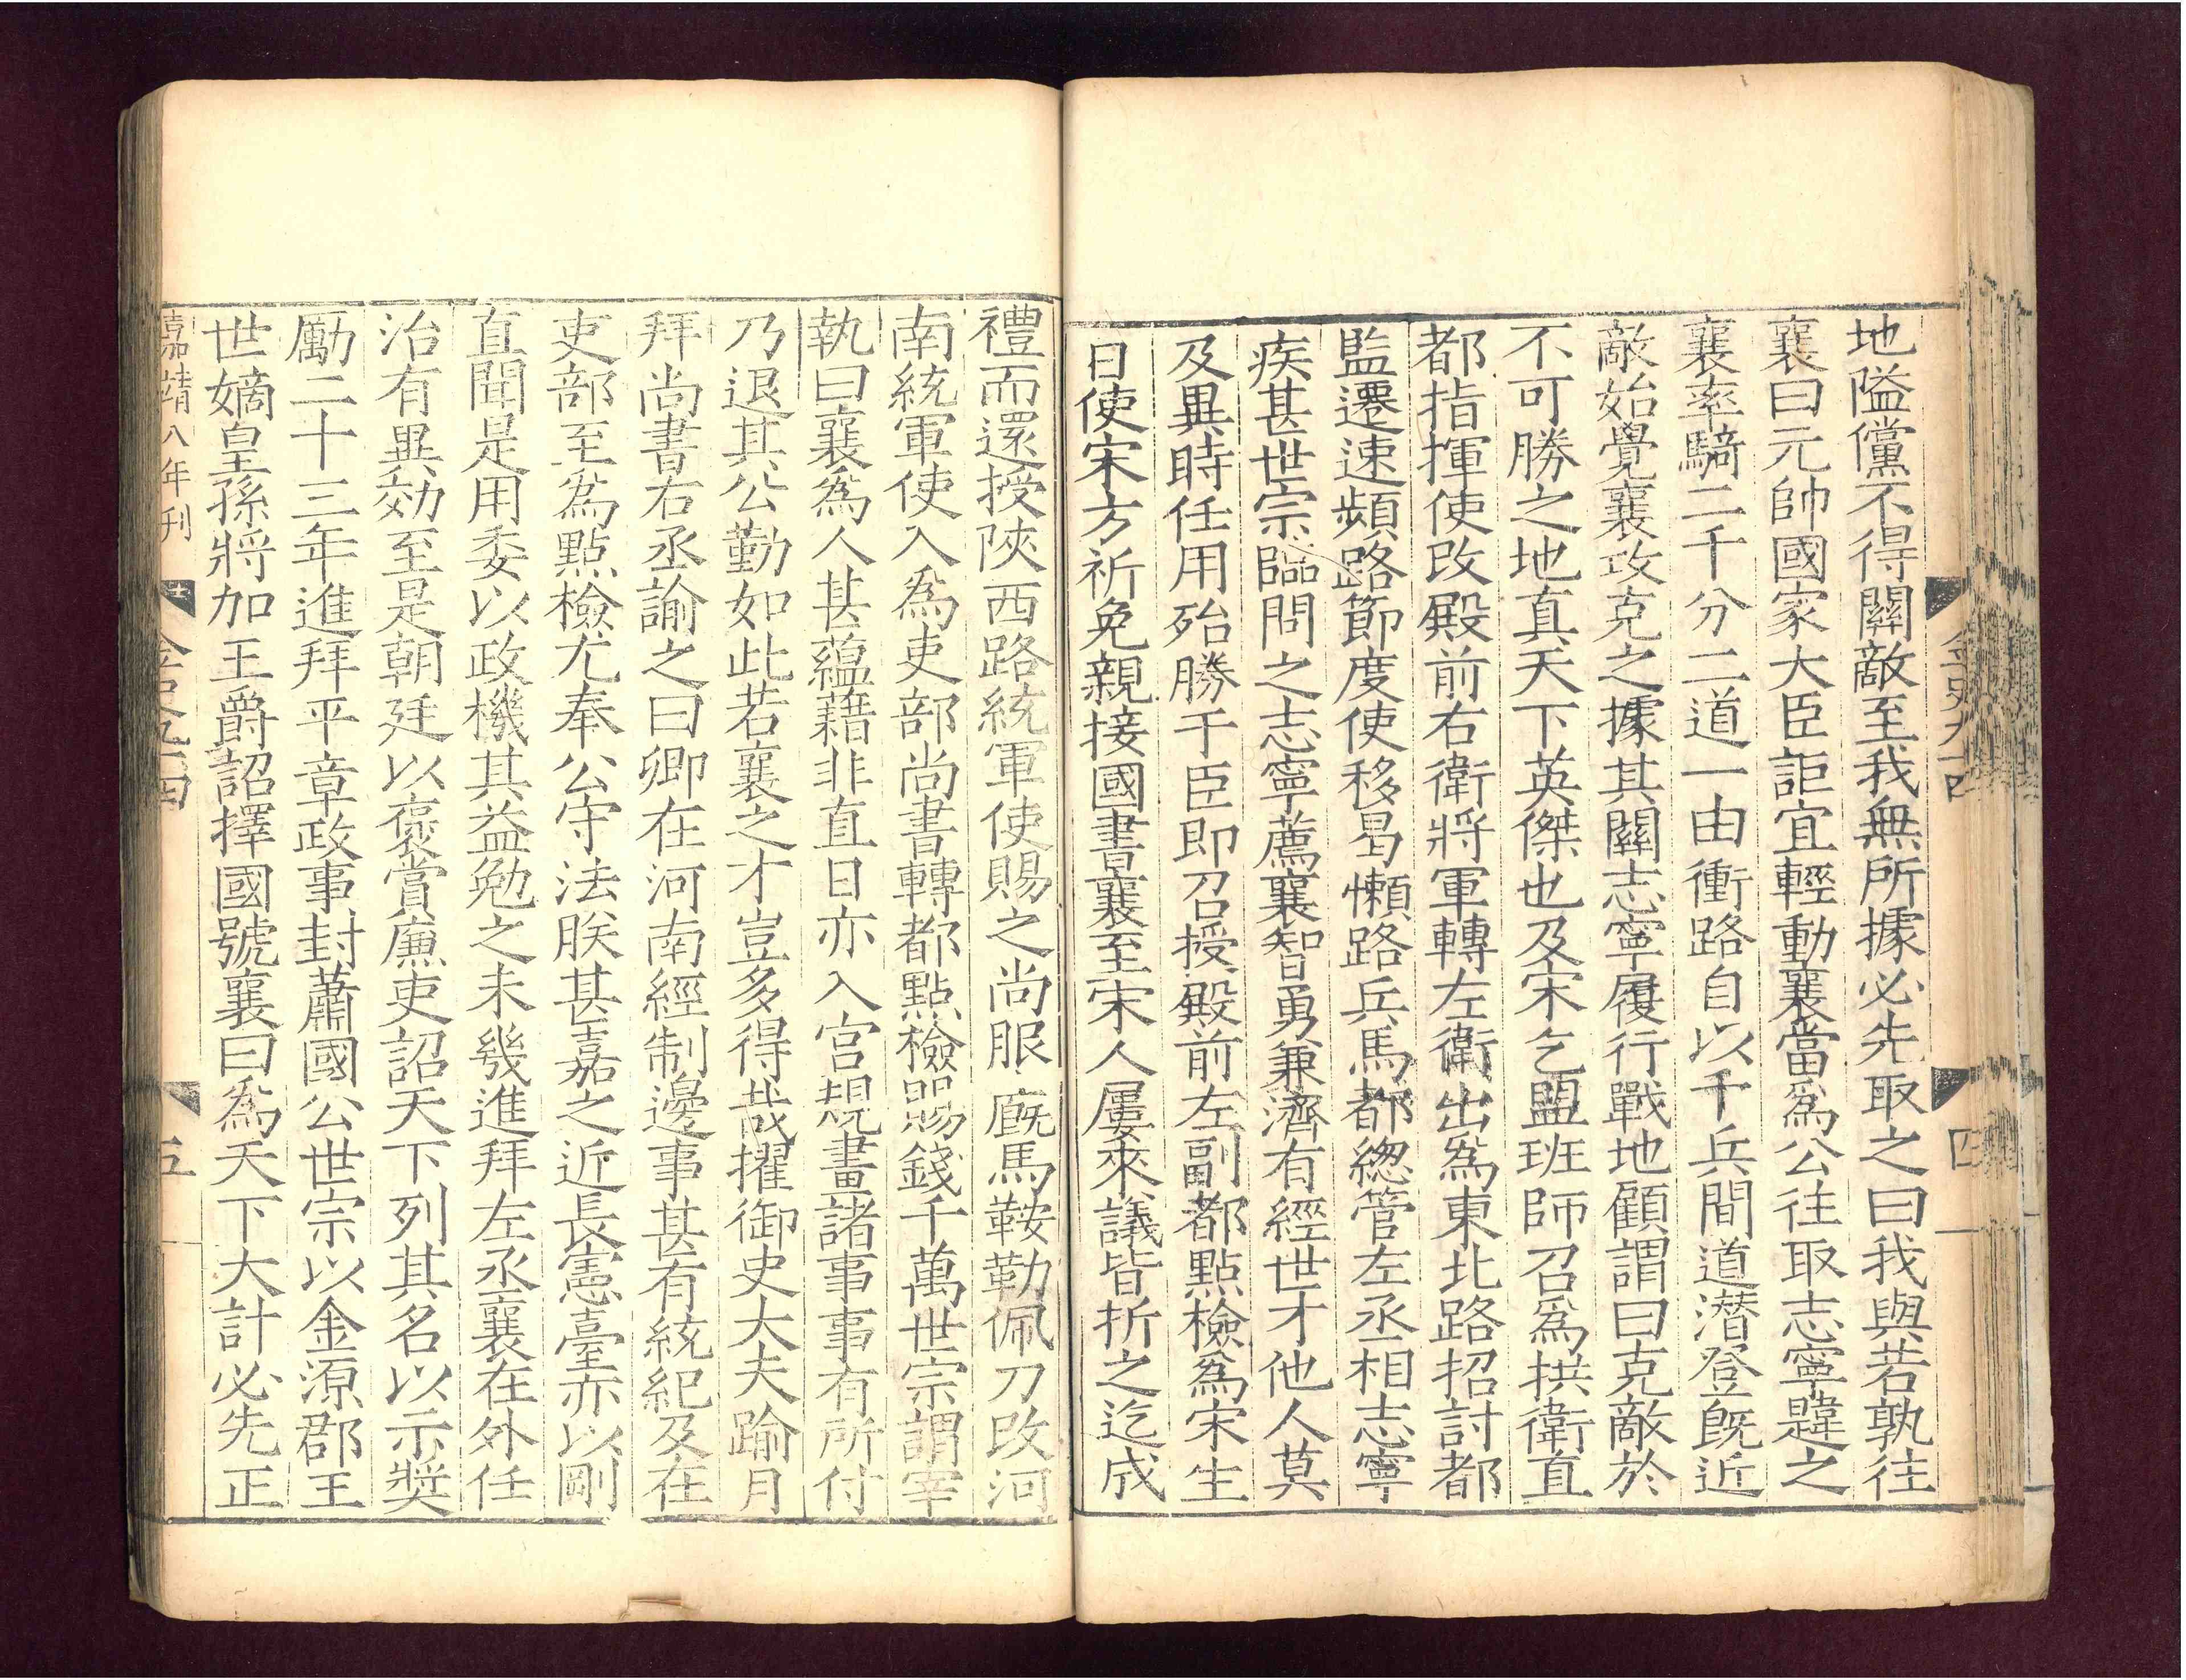 地隘儻不得關敵至我無所據必先取之曰我與若孰往
襄曰元帥國家大臣詎宜輕動襄當爲公往取志寧韙之
襄率騎二千分二道一由衝路自以千兵間道潛登旣近
敵始覺襄攻克之據其關志寧履行戰地顧謂曰克敵於
不可勝之地真天下英傑也及宋乞盟班師召爲拱衛直
都指揮使改殿前右衛將軍轉左衛出爲東北路招討都
監遷速頻路節度使移曷懶路兵馬都緫管左丞相志寧
疾甚世宗臨問之志寧薦襄智勇兼濟有經世才他人莫
及異時任用殆勝于臣即召授殿前左副都點檢爲宋生
日使宋方祈免親接國書襄至宋人屢來議皆折之迄成
金史九十四
四
禮而還授陜西路統軍使賜之尚服廐馬鞍勒佩刀改河
南統軍使入爲吏部尚書轉都點檢賜錢千萬世宗謂宰
執曰襄爲人甚蘊藉非直日亦入宮規畫諸事事有所付
乃退其公勤如此若襄之才豈多得哉擢御史大夫踰月
拜尚書右丞諭之曰卿在河南經制邊事甚有統紀及在
吏部至爲點檢尤奉公守法朕甚嘉之近長憲臺亦以剛
直聞是用委以政機其益勉之未幾進拜左丞襄在外任
治有異効至是朝廷以褒賞廉吏詔天下列其名以示奬
勵二十三年進拜平章政事封蕭國公世宗以金源郡王
世嫡皇孫將加王爵詔擇國號襄曰爲天下大計必先正
嘉靖八年刊
五